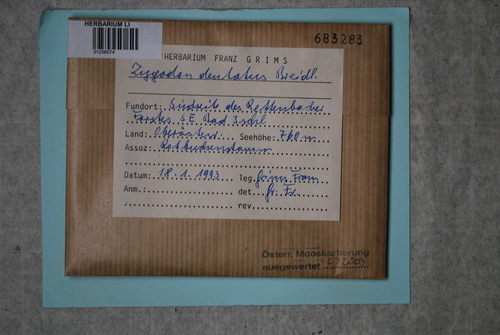 HERBARIUM LI
01256074
683283
HERBARIUM FRANZ GRIMS
Zygodon dentatus Breidl.
Fundort: Südseite des Rettenbacher
Forstes SE Bad Ischl
Land: Oberösterr. Seehöhe: 760 m
Assoz: Rotbuchenstamm
Datum: 18.1.1993 leg. Grims Franz
Anm.: det Gr. Fr.
rev
Österr. Mooskartierung
ausgewertet